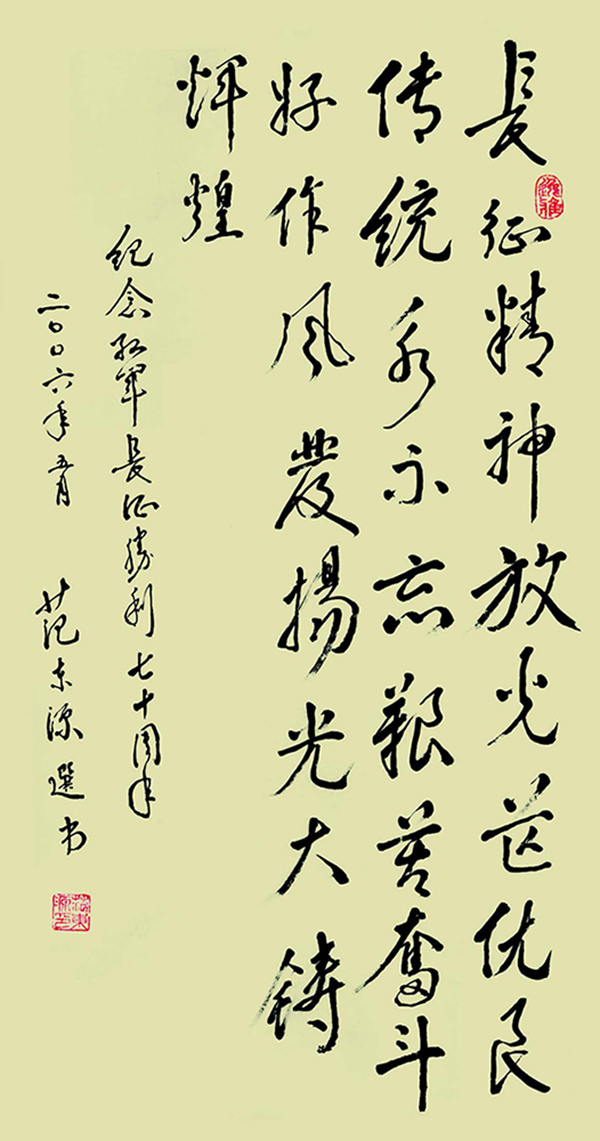 長征精神放光芒优良
传统永不忘艱苦奮斗
好作风發揚光大鑄
煇煌
纪念红军長征勝利七十周年
二〇〇六年五月 范东源選书